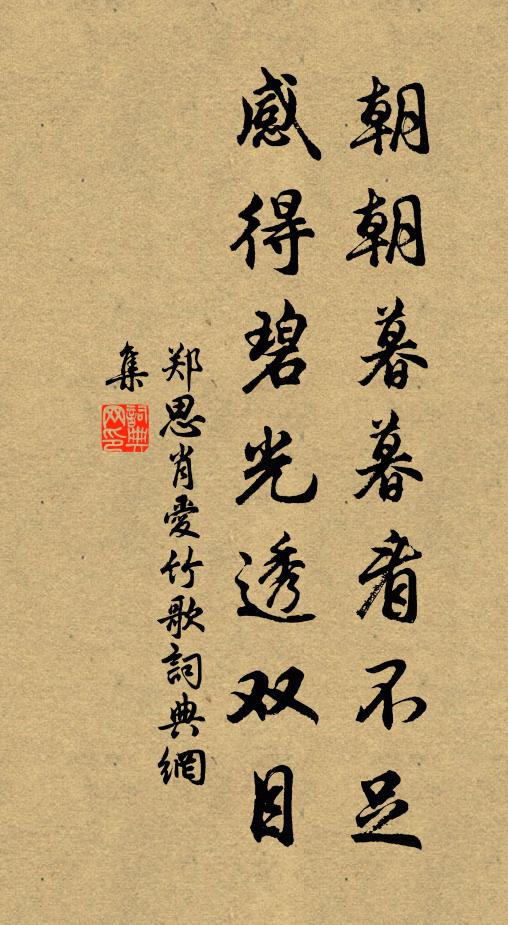 朝朝暮暮看不足
感得碧光透双目
郑思肖爱竹歌詞典網
集
詞典网印